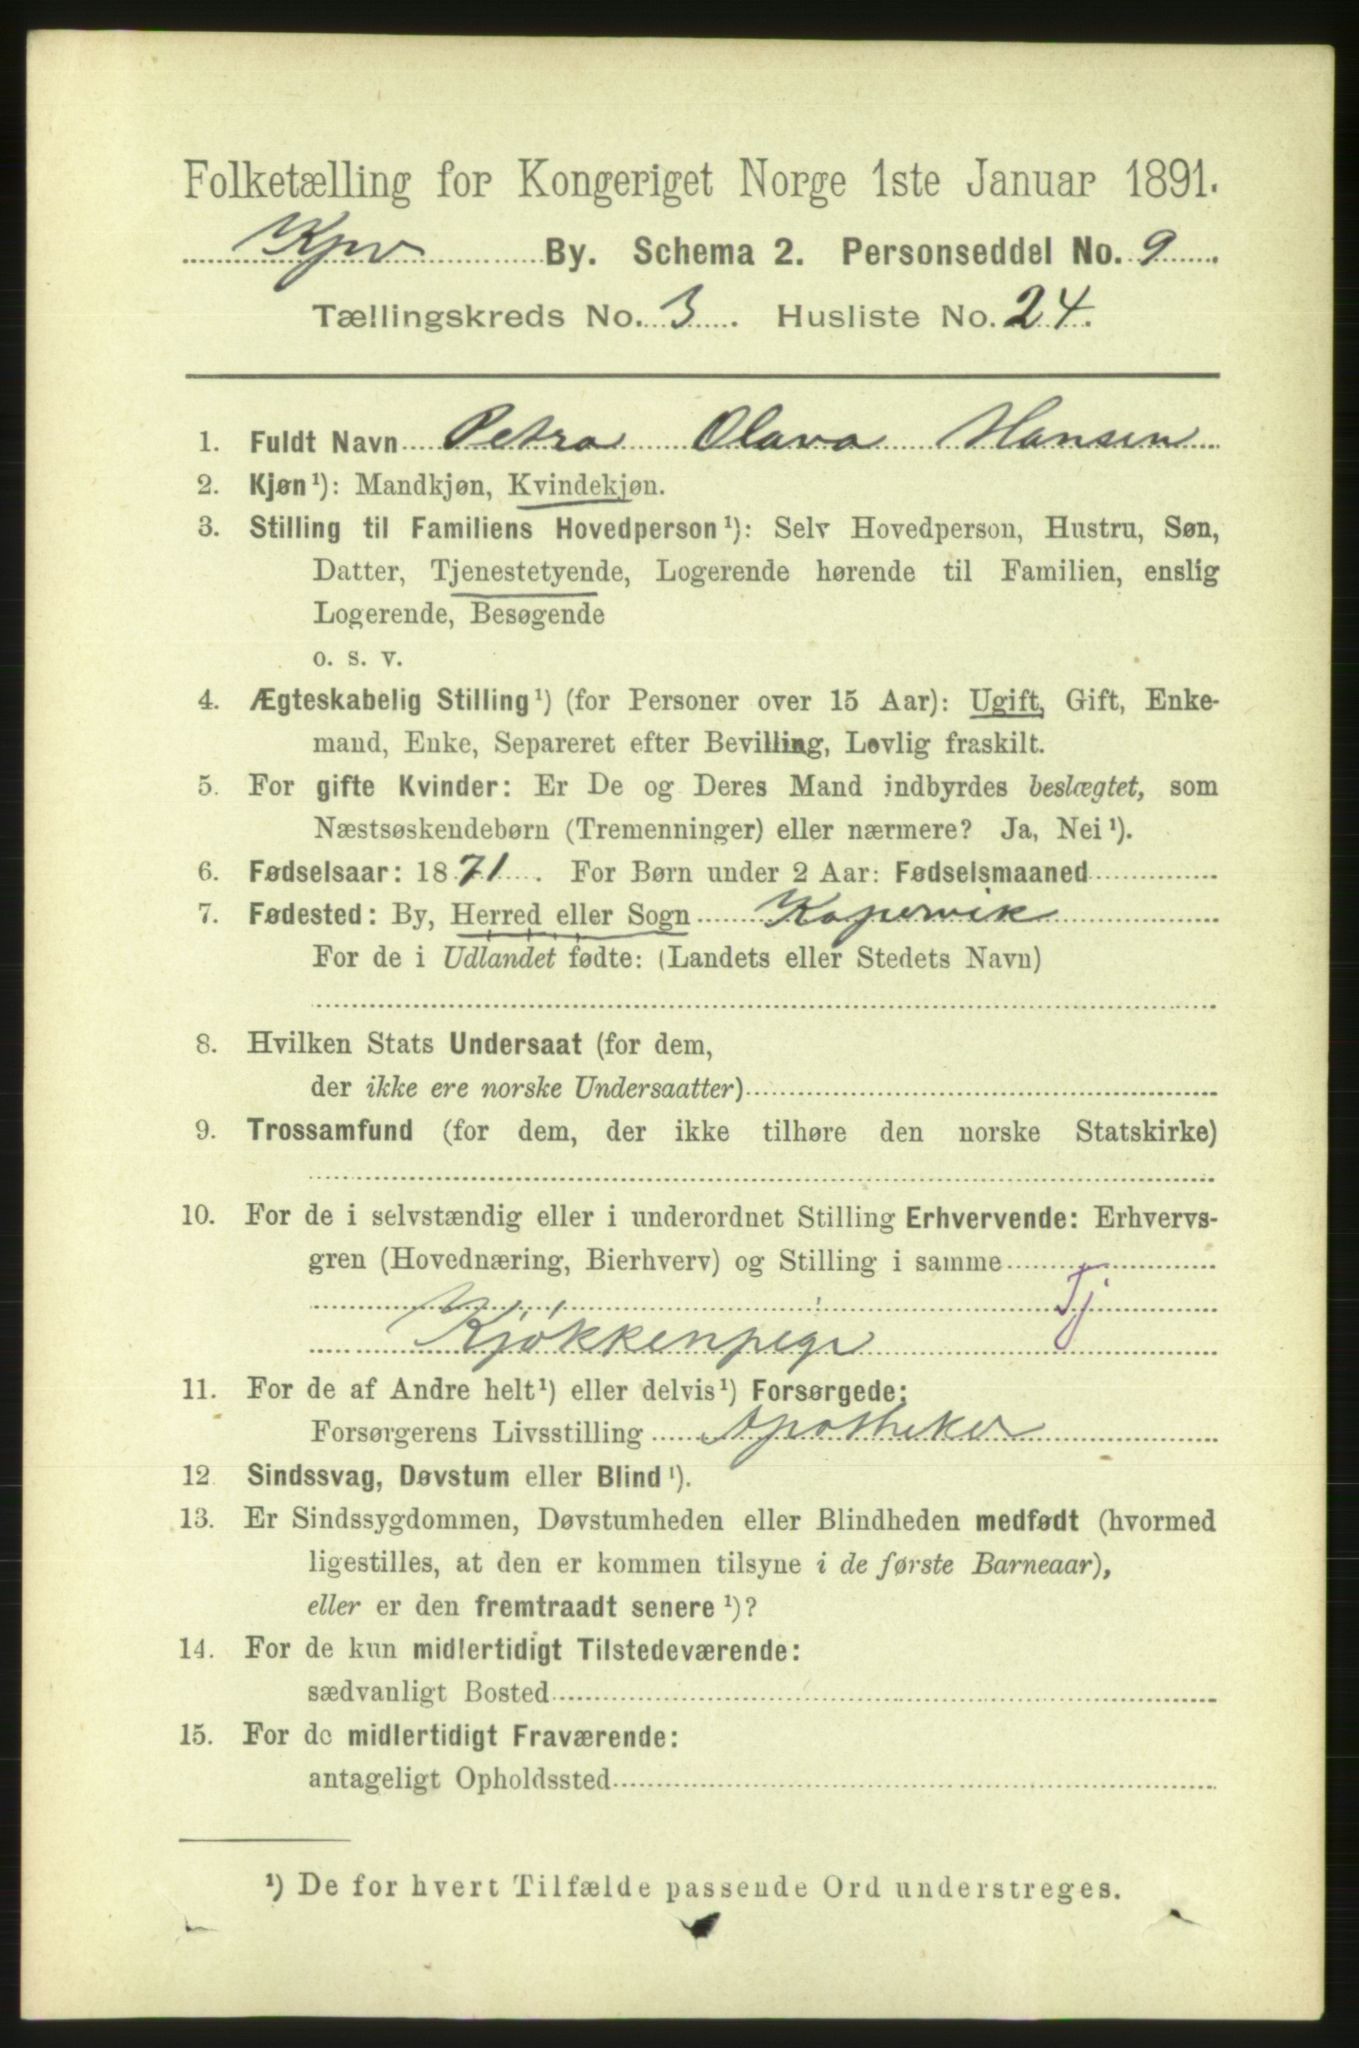 Folketælling for Kongeriget Norge 1ste Januar 1891.
Kpv By. Schema 2. Personseddel No. 9
Tællingskreds No. 3. Husliste No. 24.
1. Fuldt Navn Petra Olava Hansen
2. Kjøn¹): Mandkjøn, Kvindekjøn.
3. Stilling til Familiens Hovedperson¹): Selv Hovedperson, Hustru, Søn,
Datter, Tjenestetyende, Logerende hørende til Familien, enslig
Logerende, Besøgende
o. s. v.
4. Ægteskabelig Stilling¹) (for Personer over 15 Aar): Ugift, Gift, Enke-
mand, Enke, Separeret efter Bevilling, Lovlig fraskilt.
5. For gifte Kvinder: Er De og Deres Mand indbyrdes beslægtet, som
Næstsøskendebørn (Tremenninger) eller nærmere? Ja, Nei¹).
6. Fødselsaar: 1871. For Børn under 2 Aar: Fødselsmaaned
7. Fødested: By, Herred eller Sogn Kopervik
For de i Udlandet fødte: (Landets eller Stedets Navn)
8. Hvilken Stats Undersaat (for dem,
der ikke ere norske Undersaatter)
9. Trossamfund (for dem, der ikke tilhøre den norske Statskirke)
10. For de i selvstændig eller i underordnet Stilling Erhvervende: Erhvervs-
gren (Hovednæring, Bierhverv) og Stilling i samme
Tj
Kjøkkenpige
11. For de af Andre helt¹) eller delvis¹) Forsørgede:
Forsørgerens Livsstilling Apotheker
12 Sindssvag, Døvstum eller Blind¹).
13. Er Sindssygdommen, Døvstumheden eller Blindheden medfødt (hvormed
ligestilles, at den er kommen tilsyne i de første Barneaar),
eller er den fremtraadt senere¹)?
14. For de kun midlertidigt Tilstedeværende:
sædvanligt Bosted
15. For de midlertidigt Fraværende:
antageligt Opholdssted
¹) De for hvert Tilfælde passende Ord understreges.